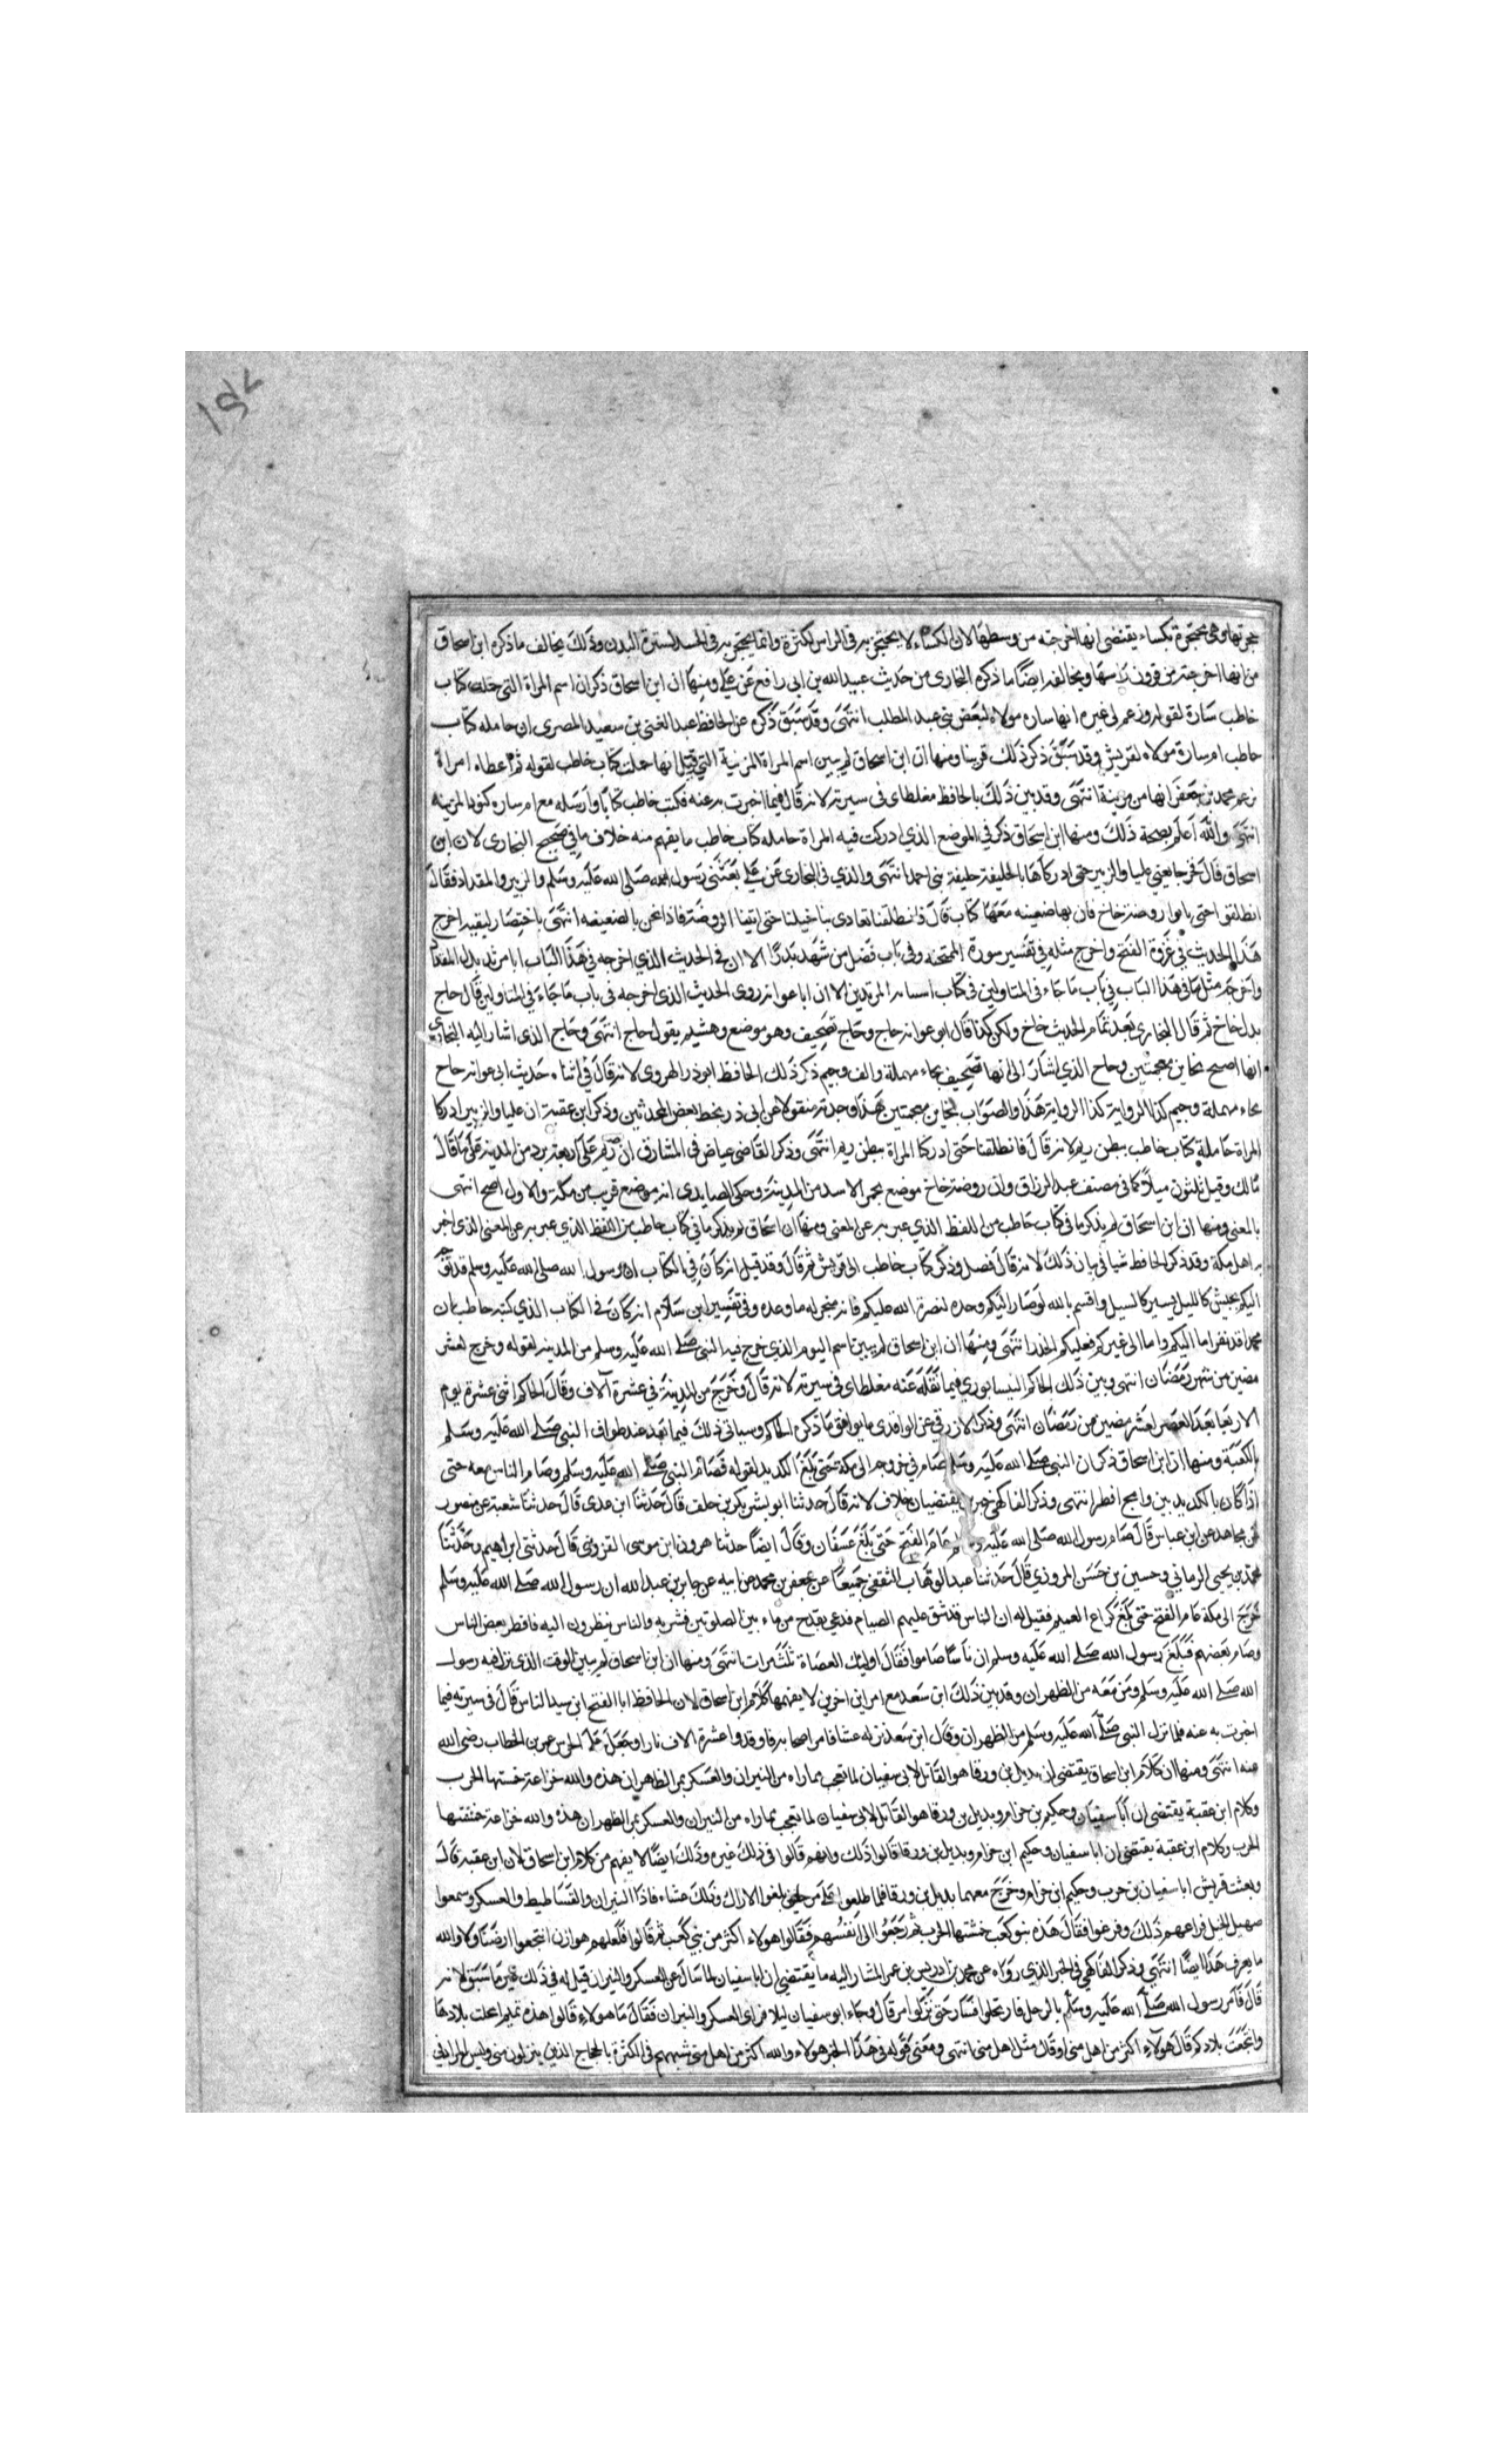 حجزتها وهي محتجزة بكساء يقتضي انها اخرجته من وسطها لان الكساء لا يحتجز به في الراس لكثرة وانما يحتجز به في الجسد لسترة البدن وذلك يخالف ما ذكره ابن اسحاق
من انها اخرجته من قرون راسها ويخالف ايضا ما ذكره البخاري من حديث عبيد الله بن ابي رافع عن علي ومنها ان ابن اسحاق ذكر ان اسم المراة التي حملت كتاب
خاطب سارة لقوله وزعم لي غيره انها ساره مولاة لبعض بني عبد المطلب انتهى وقد سبق ذكره عن الحافظ عبد الغني بن سعيد المصري ان حامله كتاب
حاطب ام سارة مولاة لقريش وقد سبق ذكر ذلك قريبا ومنها ان ابن اسحاق لم يبين اسم المراة المزنية التي قيل انها حملت كتاب خاطب لقوله ثم اعطاه امراة
زعم محمد بن جعفر انها من مزينة انتهى وقد بين ذلك بالحافظ مغلطاى في سيرته لانه قال فيما اخبرت به عنه فكتب خاطب كتابا وارسله مع ام ساره كنود المزنيه
انتهى والله اعلم بصحة ذلك ومنها ابن اسحاق ذكر في الموضع الذي ادركت فيه المراة حامله كتاب خاطب ما يفهم منه خلاف ما في صحيح البخارى لان ابن
اسحاق قال فخرجا يعني عليا والزبير حتى ادركاها بالخليفة خليفة بني احمد انتهى والذي في البخارى عن علي بعثني رسول الله صلى الله عليه وسلم والزبير والمقداد فقال
انطلقوا حتى ياتوا روضة خاخ فان بها ضعينه معها كتاب قال فانطلقنا تعادى بنا خيلنا حتى اتينا الروضة فاذا نحن بالضعيفه انتهى باختصار ليقيه اخرج
هذا الحديث في غزوة الفتح واخرج مثله في تفسير سورة الممتحنه وفي باب فضل من شهد بدرا الا ان في الحديث الذي اخرجه في هذا الباب ابا مرثد بدل المقداد
واخرجه مثل ما في هذا الباب في باب ما جاء في المتاولين في كتاب استتابه المرتدين الا ان ابا عوانه روى الحديث الذي اخرجه في باب ما جاء في المتاولين قال حاج
بدل خاخ ثم قال البخارى بعد تمام الحديث خاخ ولكن كذا قال ابو عوانه حاج وحاج تصحيف وهو موضع وهشيم يقول حاج انتهى وحاج الذي اشار اليه البخاري
انها اصح بخاين معجمتين وحاج الذي اشار الى انها تصحيف بحاء مهملة والف وجيم ذكر ذلك الحافظ ابو ذر الهروى لانه قال في اثناء حديث ابي عوانه حاج
بحاء مهملة وجيم كذا الرواية كذا الرواية هذا والصواب بخاين معجمتين هكذا وجدته منقولا عن ابي ذر بخط بعض المحدثين وذكر ابن عقبة ان عليا والزبير ادركا
المراة حاملة كتاب خاطب ببطن ريم لانه قال فانطلقنا حتى ادركا المراة ببطن ريم انتهى وذكر القاضي عياض في المشارق ان ريم على اربعة برد من المدينة على ما قال
مالك وقيل ثلثون ميلا كما في مصنف عبد الرزاق وان روضة خاخ موضع بحمر الاسد من المدينة وحكى الصايدى انه موضع قريب من مكة والاول اصح انتهى
بالمعنى ومنها ان ابن اسحاق لم يذكر ما في كتاب خاطب من اللفظ الذي عبر به عن المعنى ومنها ان اسحاق لم يذكر ما في كتاب حاطب من اللفظ الذي عبر به عن المعنى الذي اخبر
به اهل مكة وقد ذكر الحافظ شيا في بيان ذلك لانه قال فصل وذكر كتاب خاطب الى قريش ثم قال وقد قيل انه كان في الكتاب ان رسول الله صلى الله عليه وسلم قد توجه
اليكم بجيش كالليل يسير كالسيل واقسم بالله لو صار اليكم وحده لنصره الله عليكم فانه منجز له ما وعده وفي تفسير ابن سلام انه كان في الكتاب الذي كتبه حاطب ان
محمدا قد نفر اما اليكم واما الى غيركم فعليكم الحذر انتهى ومنها ان ابن اسحاق لم يبين اسم اليوم الذي خرج فيه النبي صلى الله عليه وسلم من المدينة لقوله وخرج لعشر
مضين من شهر رمضان انتهى وبين ذلك الحاكم النيسابوري فيما نقله عنه مغلطاى في سيرته لانه قال وخرج من المدينة في عشرة آلاف وقال الحاكم اثنى عشرة يوم
الاربعا بعد العصر لعشر مضين من رمضان انتهى وذكر الازرقي عن الواقدى ما يوافق ما ذكره الحاكم وسياتي ذلك فيما بعد عند طواف النبي صلى الله عليه وسلم
بالكعبة ومنها ان ابن اسحاق ذكر ان النبي صلى الله عليه وسلم صام في خروجه الى مكة حتى بلغ الكديد لقوله فصام النبي صلى الله عليه وسلم وصام الناس معه حتى
اذا كان بالكديد بين وامج افطر انتهى وذكر الفاكهي خبرين يقتضيان خلاف لانه قال حدثنا ابو بشر بكر بن خلف قال حدثنا ابن عدى قال حدثنا شعبة عن منصور
عن مجاهد عن ابن عباس قال صام رسول الله صلى الله عليه وسلم عام الفتح حتى بلغ عسفان وقال ايضا حدثنا هرون ابن موسى القزوني قال حدثني ابراهيم وحدثنا
محمد بن يحيى الزماني وحسين بن حسن المروزي قال حدثنا عبد الوهاب الثقفي جميعا عن جعفر بن محمد عن ابيه عن جابر بن عبد الله ان رسول الله صلى الله عليه وسلم
خرج الى مكة عام الفتح حتى بلغ كراع الغميم فقيل له ان الناس قد شق عليهم الصيام فدعي بقدح من ماء بين الصلوتين فشربه والناس ينظرون اليه فافطر بعض الناس
وصام بعضهم فبلغ رسول الله صلى الله عليه وسلم ان ناسا صاموا فقال اوليك العصاة ثلث مرات انتهى ومنها ان ابن اسحاق لم يبين الوقت الذي نزل فيه رسول
الله صلى الله عليه وسلم ومن معه مر الظهران وقد بين ذلك ابن سعد مع امرين اخرين لا يفهمها كلام ابن اسحاق لان الحافظ ابا الفتح ابن سيد الناس قال في سيرته فيما
اخبرت به عنه فلما نزل النبي صلى الله عليه وسلم مر الظهران وقال ابن سعد نزله عشا فامر اصحابه فاوقدوا عشرة الاف نار او جعل على الحرس عمر بن الخطاب رضى الله
عنه انتهى ومنها ان كلام ابن اسحاق يقتضي ان بديل بن ورقا هو القاتل لابي سفيان لما تعجب مما راه من النيران والعسكر بمر الظاهران هذه والله خزاعة خمشتها الحرب
وكلام ابن عقبة يقتضي ان ابا سفيان وحكيم بن حزام وبديل بن ورقا هو القاتل لابي سفيان لما تعجب مما راه من النيران والعسكر بمر الظهران هذه والله خزاعة خمشتها
الحرب وكلام ابن عقبة يقتضي ان ابا سفيان وحكيم ابن حزام وبديل بن ورقا قالوا ذلك وانهم قالوا في ذلك غيره وذلك ايضا لا يفهم من كلام ابن اسحاق لان ابن عقبة قال
وبعثت قريش ابا سفيان بن حرب وحكيم ابن حزام وخرج معهما بديل بن ورقا فلما طلعوا على مر حتى بلغوا الاراك وذلك عشاء فاذا النيران والفساطيط والعسكر وسمعوا
صهيل الخيل فراعهم ذلك وفرعوا فقال هذه بنو كعب خشتها الحرب ثم رجعوا الى انفسهم فقالوا هولاء اكثر من بني كعب ثم قالوا فلعلهم هوازن انتجعوا ارضنا ولا والله
ما يعرف هذا ايضا انتهى وذكر الفاكهي في الخبر الذي رواه عن محمد بن ادريس بن عمر المشار اليه ما يقتضي ان ابا سفيان لما سال عن العسكر والنيران قيل له في ذلك غير ما سبق لانه
قال فامر رسول الله صلى الله عليه وسلم بالرحل فارتحلوا فسار حتى نزلوا مر قال وجاء ابو سفيان ليلا فراى العسكر والنيران فقال ما هولاء قالوا هذه تميم امحلت بلادها
وانتجعت بلادكم قال هولاء اكثر من اهل منى او قال مثل اهل منى انتهى ومعنى قوله في هذا الخبر هولاء والله اكثر من اهل منى شبههم في الكثرة بالحجاج الذين ينزلون منى وليس المراد في